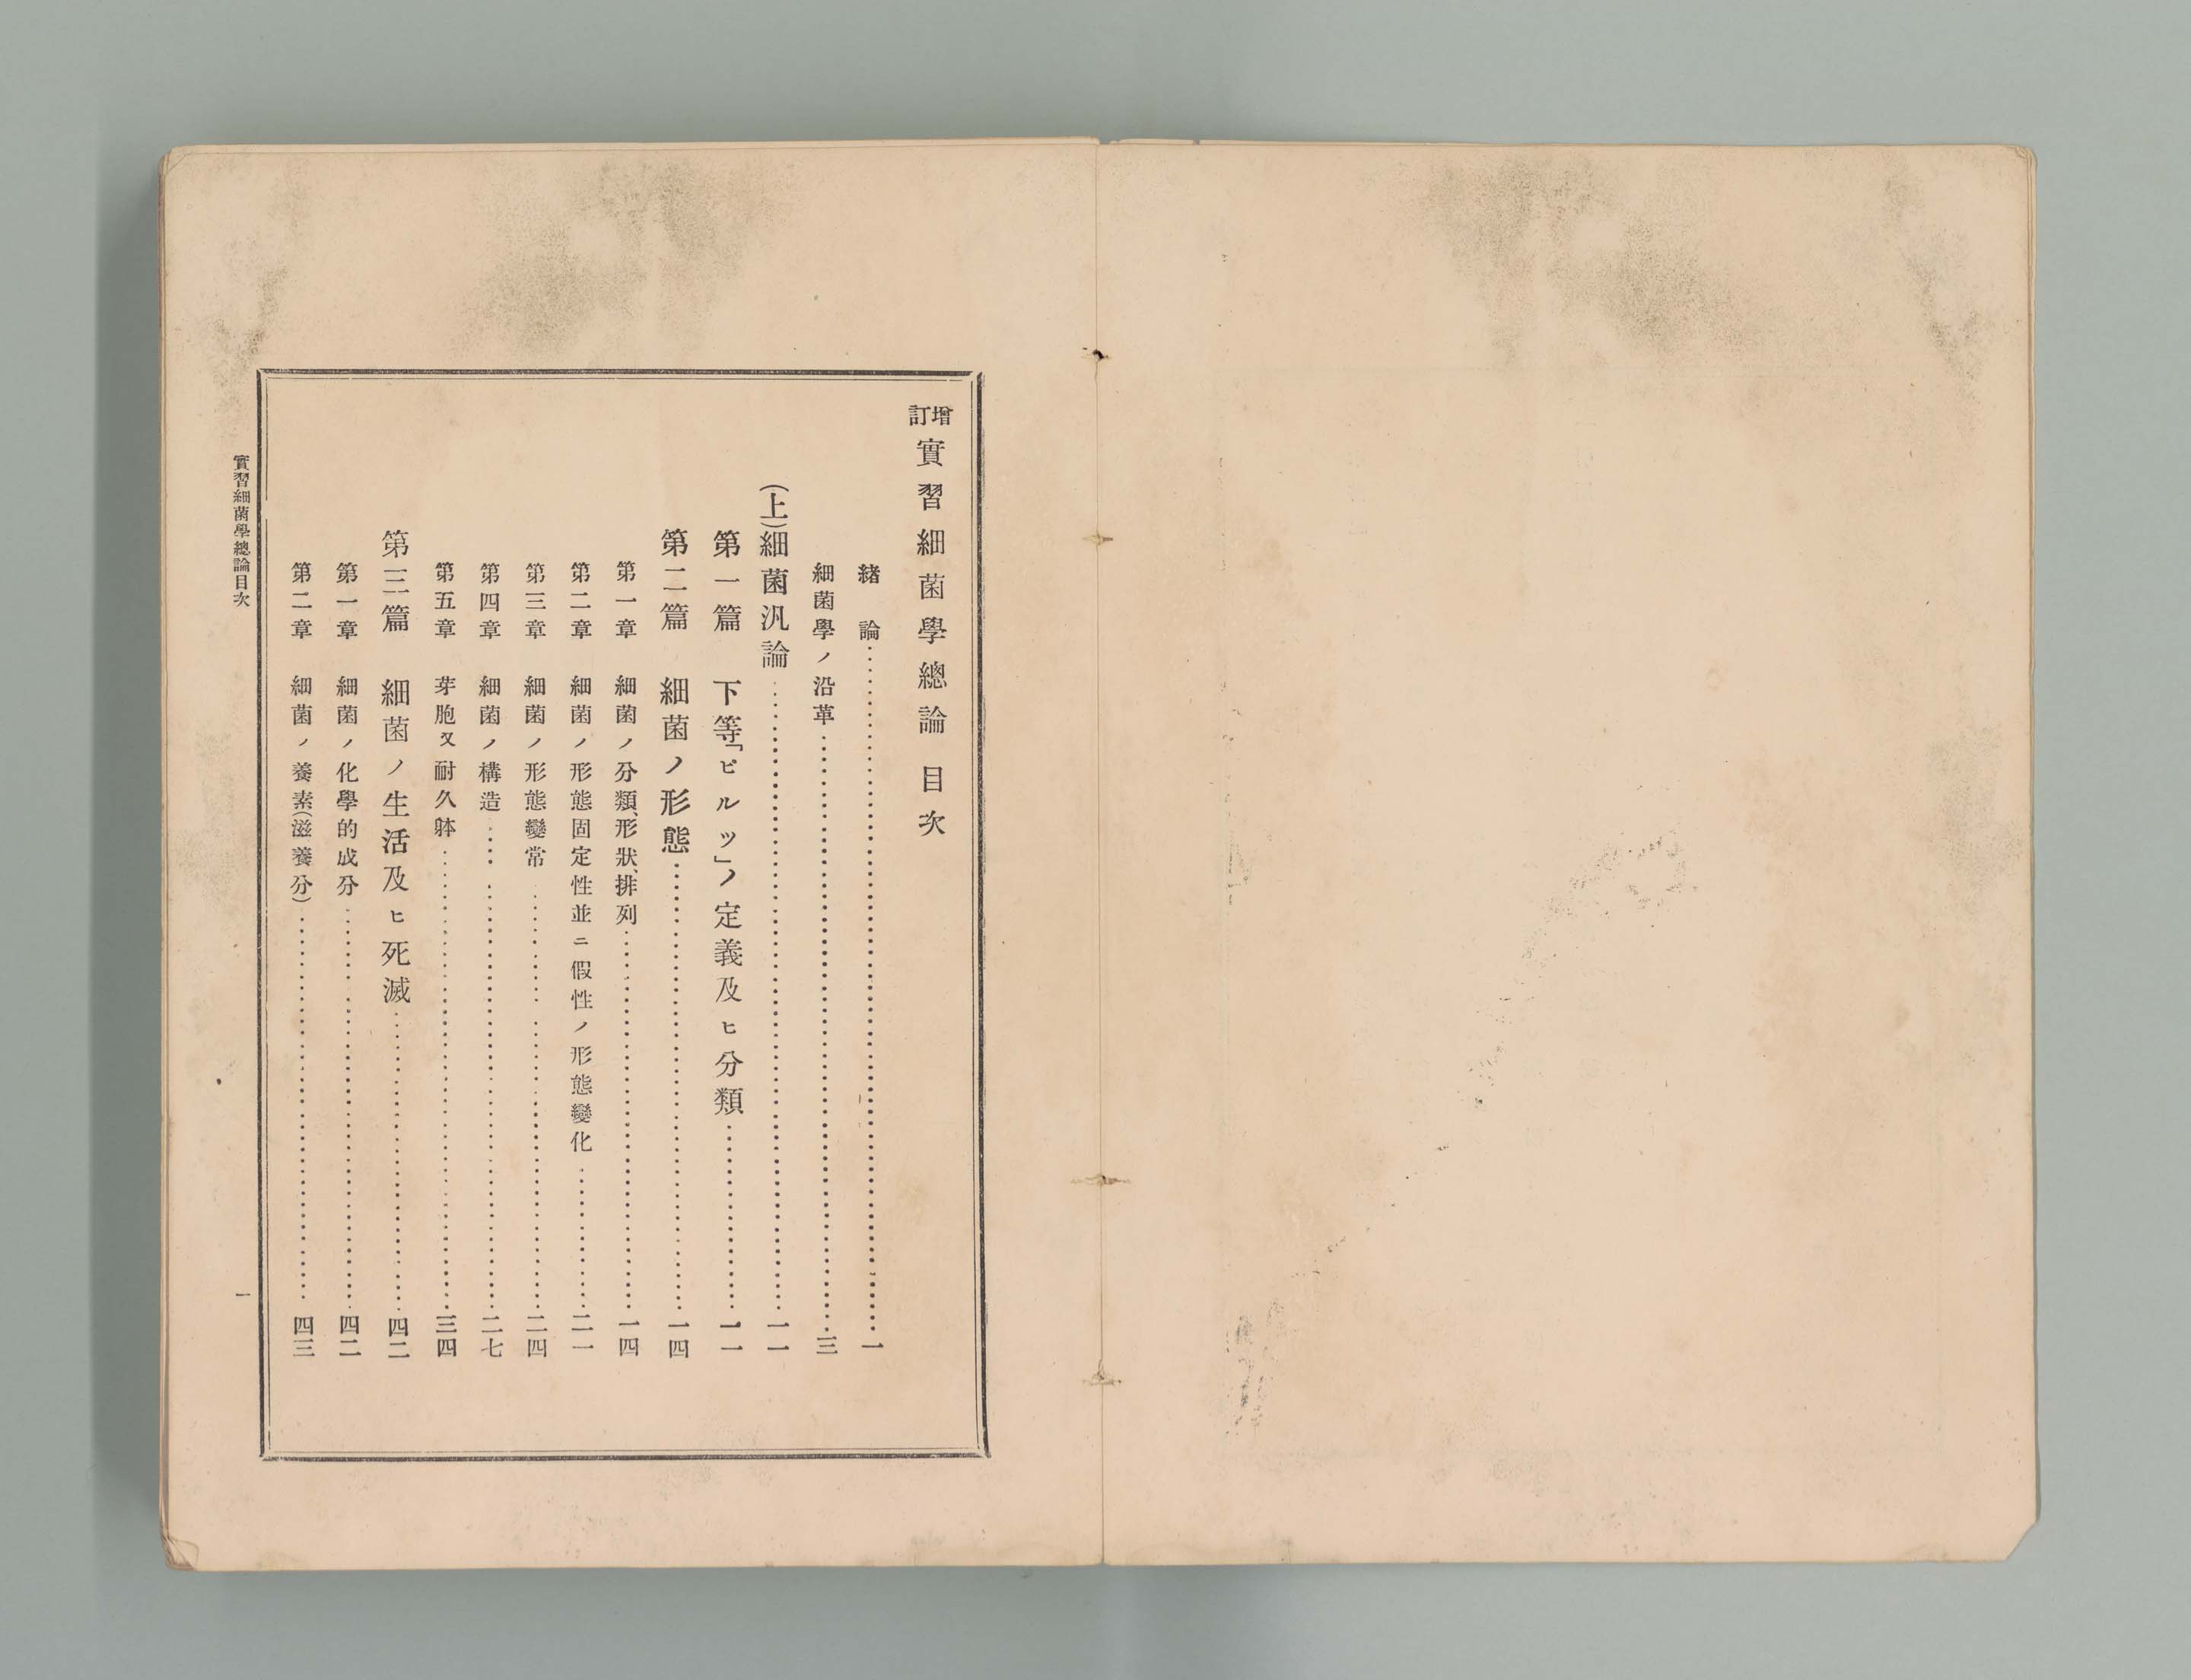 增訂實習細菌學總論目次
緖論……一
細菌學ノ沿革……三
(上)細菌汎論……一一
第一篇 下等「ピルツ」ノ定義及ヒ分類……一一
第二篇 細菌ノ形態……一四
第一章 細菌ノ分類、形狀、排列……一四
第二章 細菌ノ形態固定性並ニ假性ノ形態變化……二一
第三章 細菌ノ形態變常……二四
第四章 細菌ノ構造……二七
第五章 芽胞又耐久躰……三四
第三篇 細菌ノ生活及ヒ死滅……四二
第一章 細菌ノ化學的成分……四二
第二章 細菌ノ養素(滋養分)……四三
實習細菌學總論目次
一